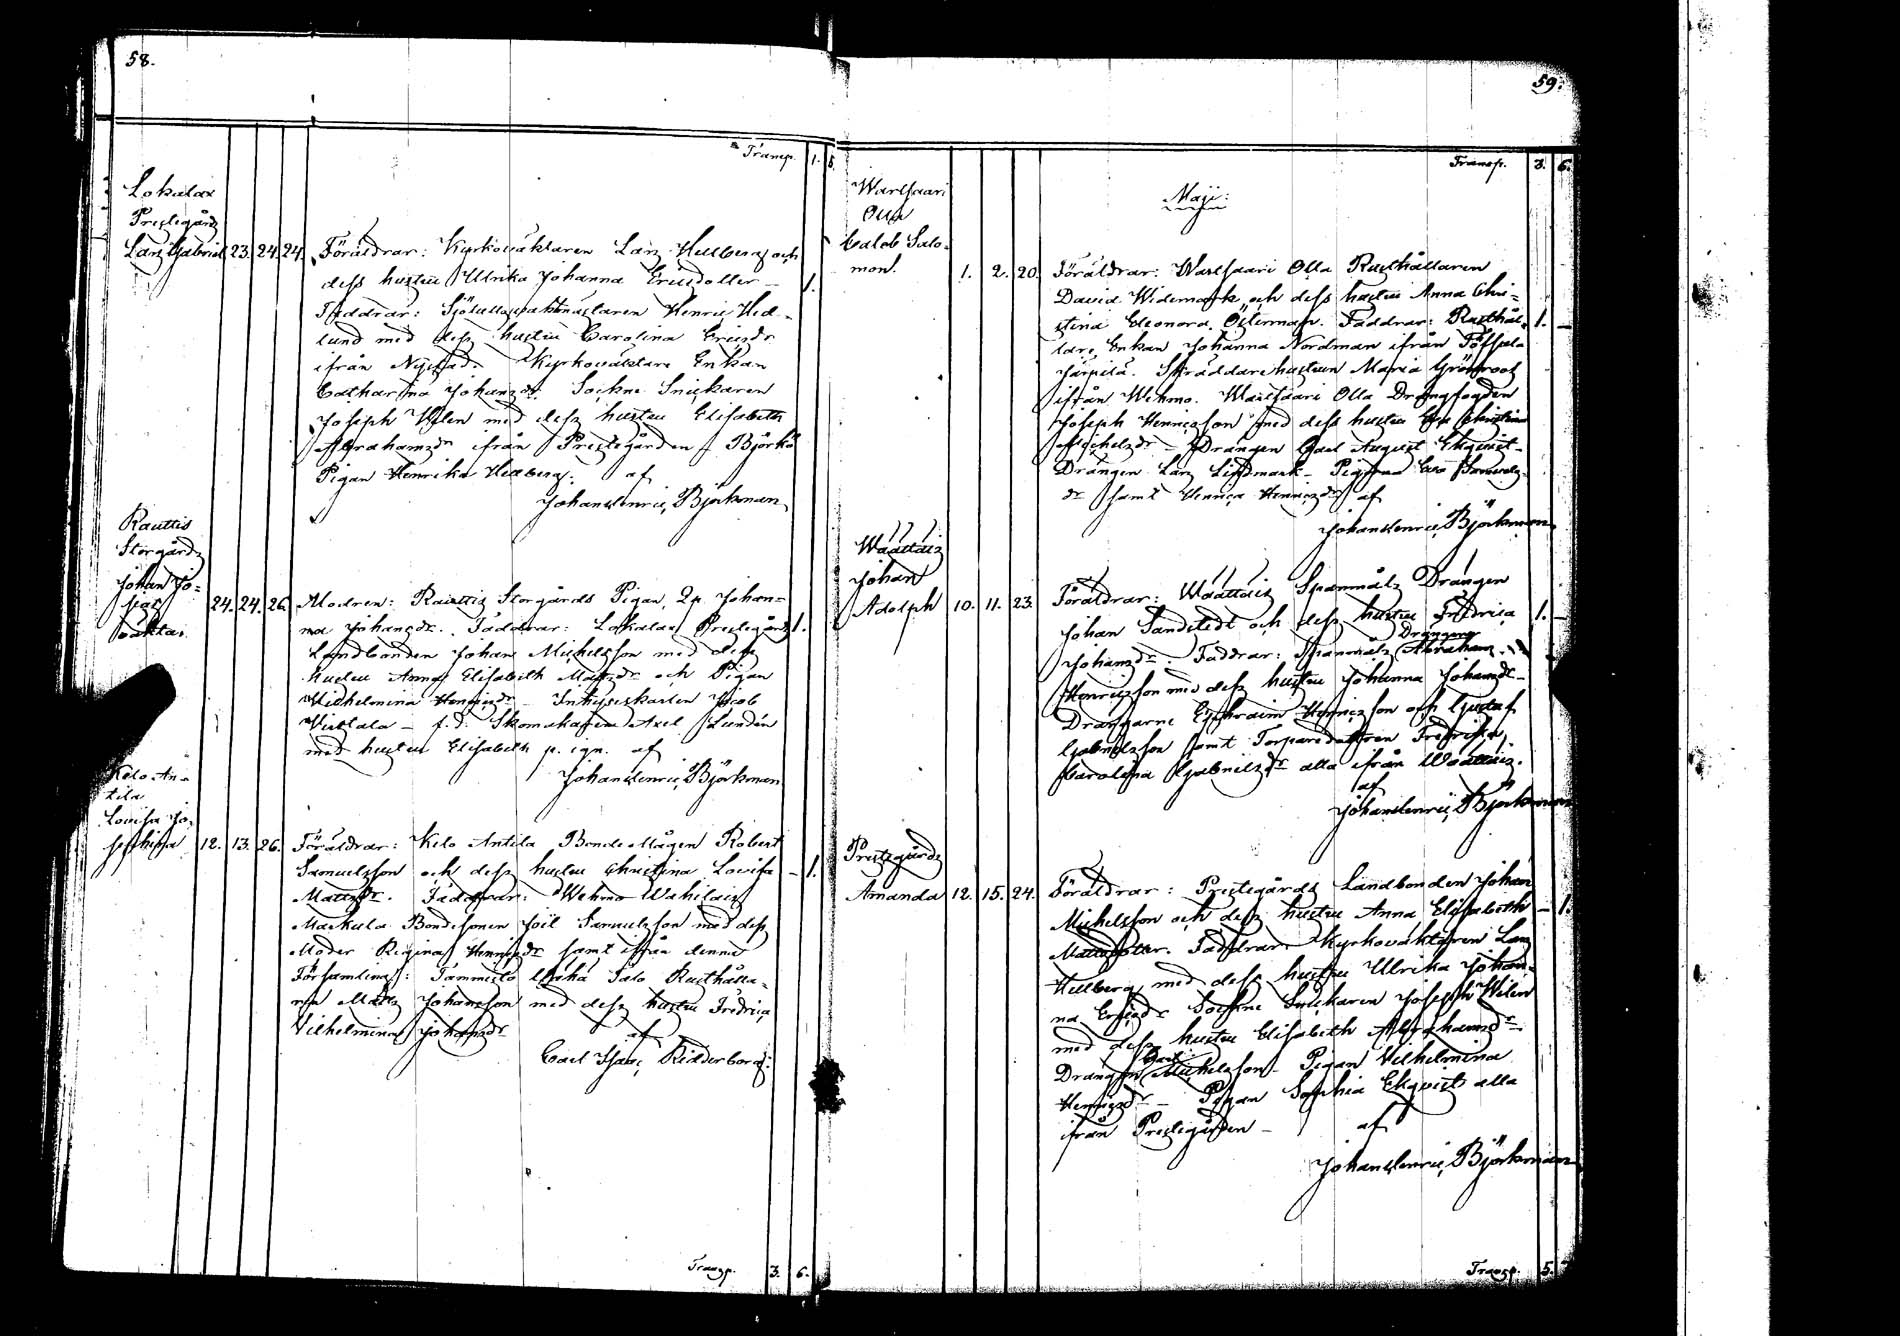 58.
Transp. 1. 5.
Lokalax
Prestegårds
Lars Gabriel 23. 24. 24. Föräldrar: Kyrkoväktaren Lars Hellberg och
dess hustru Ulrika Johanna Ericsdotter – 1.
Faddrar: Henric Hed-
lund med dess hustru Carolina Ericsdr
ifrån Nystad. Kyrkoväktare Enkan
Catharina Johansdr. Sockne Snickaren
Joseph Wilen med dess hustru Elisabeth
Abrahamsdr ifrån Prestegården
Pigan Henrika Hellberg. af
Johan Henric Björkman
Rauttis
Storgårds
Johan Jo-
24. 24. 26. Modren: Rauttis Storgårds Pigan, Qp. Johan-
na Johansdr. Faddrar: Lokalax Prestegårds 1.
Landbonden Johan Michelsson med dess
hustru Anna Elisabeth Mattsdr och Pigan
Wilhelmina Henricsdr – Jacob
– f.d. Skomakaren Axel Lundén
med hustru Elisabeth p. ign. af
Johan Henric Björkman
Kelo An-
tila
Lovisa Jo-
sephina 12. 13. 26. Föräldrar: Kelo Antila Bonde Mågen Robert
Samuelsson och dess hustru Christina Lovisa – 1.
Mattsdr. Faddrar: Wehmo
Markula Bondesonen Joël Samuelsson med dess
Moder Regina Henricsdr samt ifrån denne
Församling: Tammisto Salo Rusthålla-
ren Matts Johansson med dess hustru Fredrica
Vilhelmina Johansdr af
Carl Isaac Ridderborg:
Transp. 3. 6.
59.
Transp. 3. 6.
Warlsaari
Olla
Caleb Salo-
mon. Maji:
1. 2. 20. Föräldrar: Warlsaari Olla Rusthållaren
David Widemark och dess hustru Anna Chri-
stina Eleonora Österman. Faddrar: Rusthål- 1. –
lare Enkan Johanna Nordman ifrån
Järpilä. Skräddare hustrun Maria Grönroos
ifrån Wehmo. Warlsaari Olla Drängfogden
Joseph Henricsson med dess hustru Christina
Michelsdr – Drängen Carl August Ekqvist –
Drängen Lars Lindmark – Pigorna Eva Samuels-
dr samt Henrica Henricsdr af
Johan Henric Björkman
Waattais
Johan
Adolph 10. 11. 23. Föräldrar: Waattais Spanmåls Drängen
Johan Sandstedt och dess hustru Fredrica 1. –
Johansdr. Faddrar: Spanmåls Drängarne Abraham
Henricsson med dess hustru Johanna Johansdr –
Drängarne Ephraim Henricsson och Gustaf
Gabrielsson samt Torparedottren Fredrika
Carolina Gabrielsdr alla ifrån Waattais.
af
Johan Henric Björkman
Prestegårds
Amanda 12. 15. 24. Föräldrar: Prestegårds Landbonden Johan
Michelsson och dess hustru Anna Elisabeth – 1.
Mattsdotter. Faddrar: Kyrkoväktaren Lars
Hellberg med dess hustru Ulrika Johan-
na Ericsdr Sockne Snickaren Joseph Wilen
med dess hustru Elisabeth Abrahamsdr
Drängen Carl Michelsson – Pigan Vilhelmina
Henricsdr – Pigan Sophia Ekqvist alla
ifrån Prestegården – af
Johan Henric Björkman
Transp. 5.